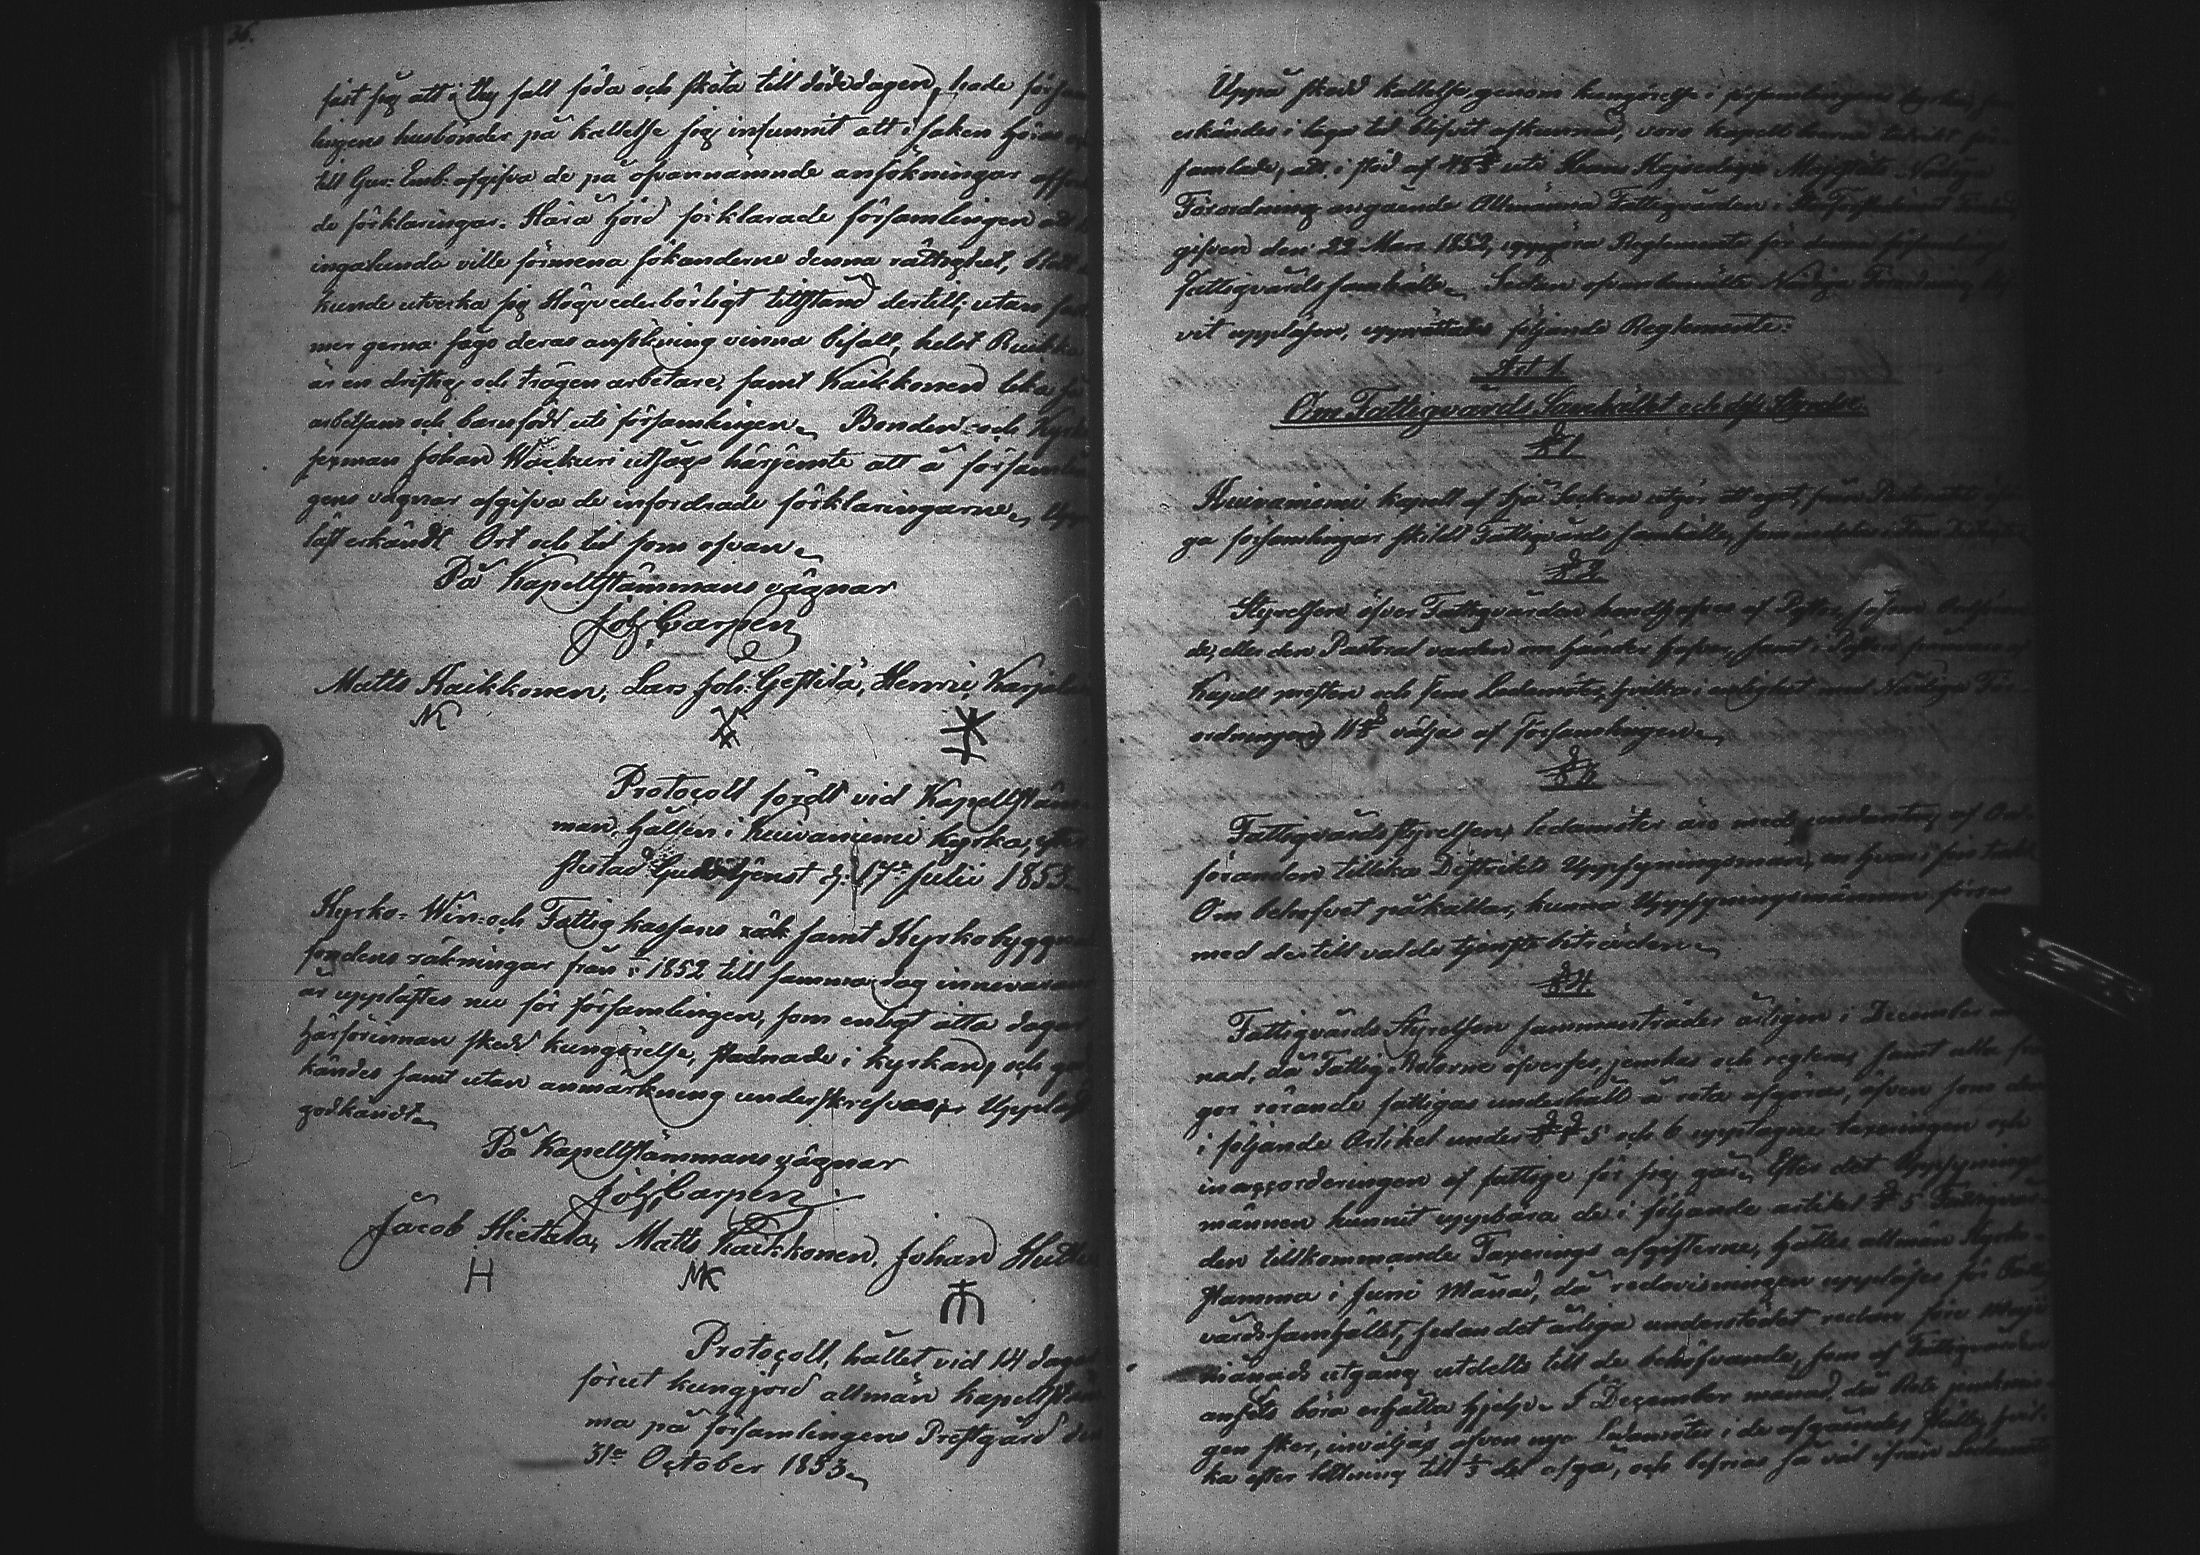 36.
fäst sig att i thy fall föda och sköta till dödedagen, hade försam
lingens husbönder på kallelse sig infunnit att i saken höras och
till Guv: Emb: afgifva de på ofvannämnde ansökningar affor
de förklaringar. Härå hörd förklarade församlingen att
ingalunda ville förmena sökanderne denna rättighet,
kunde utverka sig Högvederbörligt tillstånd dertill, utan
mer gerna sågo deras ansökning vinna bifall, helst
är en driftig och trägen arbetare, samt Kaikkonen lika
arbetsam och barnfödt uti församlingen. Bonden och Kyrk
Johan Wäckuri utsågs härjemte att å församlin
gens vägnar afgifva de infordrade förklaringarne. Upp
läst erkändt Ort och tid som ofvan.
På Kapellstämmans vägnar
Joh: Carpen
Matts Kaikkonen, Lars Joh: Heftilä, Henric Karjala
MK
Protocoll fördt vid Kapellstäm
man, hållen i Kuivaniemi kyrka, efter
slutad Gudstjenst d: 17de Julii 1853.
Kyrko- Win- och Fattig kassans räk samt Kyrkobyggnad
fondens räkningar från 1852 till samma dag innevarande
år upplästes nu för församlingen, som enligt åtta dagar
härförinnan skedd kungörelse, stadnade i kyrkan, och god
kändes samt utan anmärkning underskrefvos; Uppläst
godkändt.
På Kapellstämmans vägnar
Joh: Carpen
Jacob Hietala, Matts Kaikkonen, Johan
H MK
Protocoll, hållet vid 14 dagar
förut kungjord allmän kapellstäm
ma på församlingens Prestgård den
31de October 1853.
Uppå skedd kallelse genom kungörelse i församlingens kyrka,
i laga tid blifvit afkunnad, voro kapellboerne talrikt för-
samlade, att i stöd af § uti Hans Kejserliga Majestäts Nådiga
Förordning angående Allmänna Fattigvården i Storfurstendömet Finland
gifven den 22 Mars 1852, uppgöra Reglemente för denna församlings
Fattigvårdssamhälle. Sedan ofvanbemälte Nådiga Förordning blif-
vit uppläsen, upprättades följande Reglemente:
Art. 1.
Om Fattigvårds Samhället och dess Styrelse.
§ 1.
Kuivaniemi kapell af Ijo Socken utgör ett eget, från Pastoratets öfri
ga församlingar skildt Fattigvårds samhälle, som indelas i Fem Distrikter.
§ 2.
Styrelsen öfver Fattigvården handhafves af Pastor, såsom Ordföran
de, eller den Pastoral vården omhänder hafver, samt i Pastors frånvaro af
Kapell presten och fem Ledamöter, hvilka i enlighet med Nådiga För-
ordningens 11 § väljas af Församlingen.
§ 3.
Fattigvårdsstyrelsens ledamöter äro med undantag af Ord-
föranden tillika Distrikts Uppsyningsmän, en hvar i sin trakt.
Om behofvet påkallar, kunna Uppsyningsmännen förses
med dertill valda tjensteträden.
§ 4.
Fattigvårds Styrelsen sammanträder årligen i December må
nad, då Fattig Rotorne öfverses, jemkas och regleras, samt alla frå
gor rörande fattigas underhåll å rota afgöras, äfven som den
i följande Artikel under § § 5 och 6 upptagne taxeringen och
inaccorderingen af fattige för sig går. Efter det Uppsynings
männen hunnit uppbära de i följande artikel § 5 Fattigvår-
den tillkommande Taxerings afgifterne, hålles allmän Kyrko-
stämma i Juni Månad, då redovisningen uppläses för Fattig
vårdssamhället, sedan det årliga understödet redan före Maji
månads utgång utdelts till de behöfvande, som af Fattigvården
anses böra erhålla hjelp. I December månad då Rote jemknin
gen sker, inväljas äfven nya Ledamöter i de afgåendes ställe, hvil-
ka efter lottning till ⅓ del afgå, och befrias så väl ifrån Ledamöt